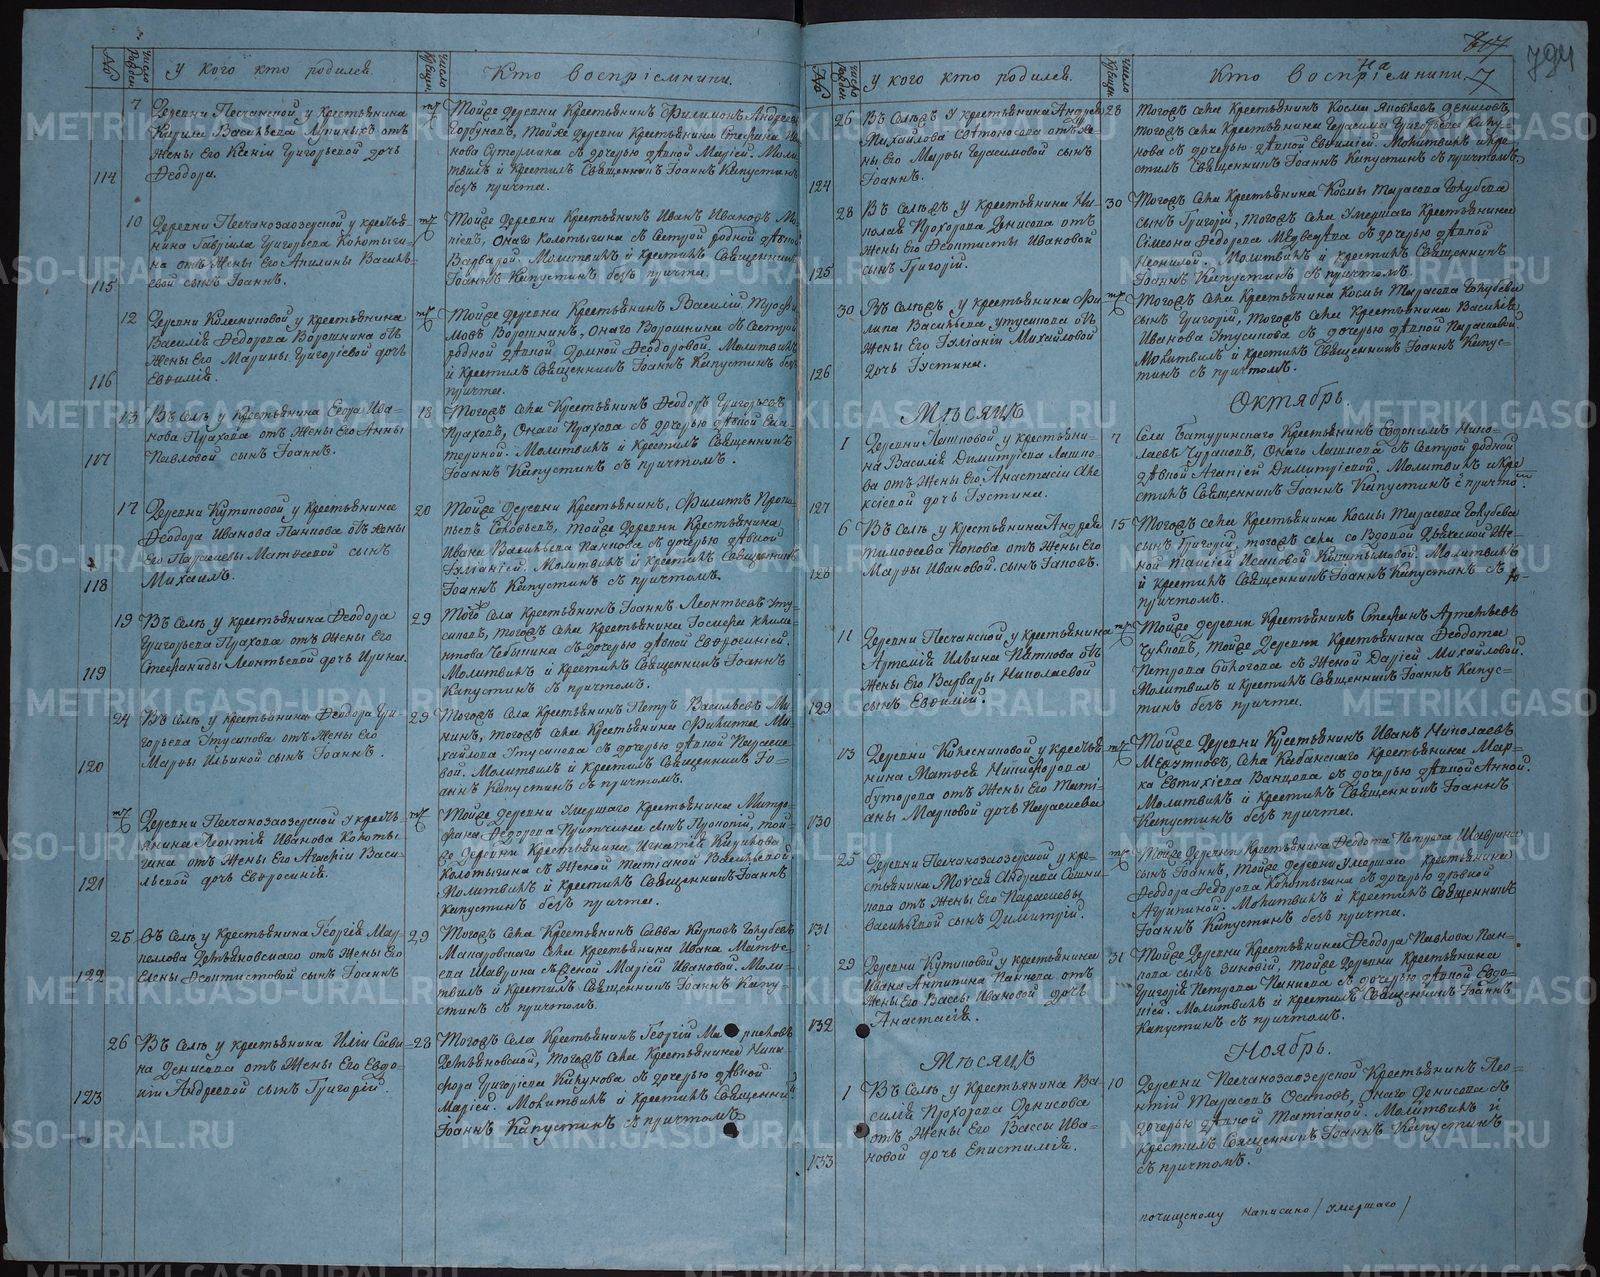 794
№
Число Рожден.
У кого кто родился.
Число Крещен.
Кто восприемники.
7
Деревни Песчанской у крестьянина
Кирила Васильева от
жены его Ксении Григорьевой дочь
Феодора.
114
тож
Тойже деревни Крестьянинъ Филимонъ Андреевъ
Горбуновъ, тойже деревни Крестьянина Стефана Ива-
нова Сутормина съ дочерью дѣвной Маріей. Моли-
твилъ и крестилъ Священникъ Іоаннъ Капустинъ
безъ причта.
10
Деревни Песчанозаозерской у крестья-
нина Гавріила Григорьева Колотыги-
на отъ жены его Акилины Василь-
евой сынъ Іоаннъ.
115
тож
Тойже деревни Крестьянинъ Иванъ Ивановъ
онаго Колотыгина съ сестрой родной дѣвной
Варварой. Молитвилъ и крестилъ Священникъ
Іоаннъ Капустинъ безъ причта.
12
Деревни Колесниковой у крестьянина
Василья Феодорова Ворошнина отъ
жены его Марины Григоріевой дочь
Евфимія.
116
тож
Тойже деревни Крестьянинъ Василій Трофи-
мовъ Ворошнинъ, онаго Ворошнина съ сестрой
родной дѣвной Домной Феодоровой. Молитвилъ
и крестилъ Священникъ Іоаннъ Капустинъ безъ
причта.
13
Въ Селѣ у Крестьянина Егора Ива-
нова Прахова отъ жены его Анны
Павловой сынъ Іоаннъ.
117
18
Тогожъ села Крестьянинъ Феодоръ Григорьевъ
Праховъ, онаго Прахова съ дочерью дѣвной Ека-
териной. Молитвилъ и крестилъ Священникъ
Іоаннъ Капустинъ съ причтомъ.
17
Деревни Кутиковой у крестьянина
Феодора Иванова Панкова отъ жены
его Параскевы Матѳеевой сынъ
Михаилъ.
118
20
Тойже деревни Крестьянинъ, Филипъ Проко-
пьевъ Соловьевъ, тойже деревни Крестьянина
Ивана Васильева Панкова съ дочерью дѣвной
Іуліаніей. Молитвилъ и крестилъ Священникъ
Іоаннъ Капустинъ съ причтомъ.
19
Въ Селѣ у крестьянина Феодора
Григорьева Прахова отъ жены его
Стефаниды Леонтьевой дочь Ирина.
119
29
Того села Крестьянинъ Іоаннъ Леонтьевъ Уту-
синовъ, тогожъ села Крестьянина
съ дочерью дѣвной Евфросиніей.
Молитвилъ и крестилъ Священникъ Іоаннъ
Капустинъ съ причтомъ.
24
Въ Селѣ у крестьянина Феодора Гри-
горьева Утусикова отъ жены его
Марфы Ильиной сынъ Іоаннъ.
120
29
Тогожъ села Крестьянинъ Петръ Васильевъ Ми-
нинъ, тогожъ села Крестьянина Никиты Ми-
хайлова Утусикова съ дочерью дѣвной Параске-
вой. Молитвилъ и крестилъ Священникъ Іо-
аннъ Капустинъ съ причтомъ.
тож
Деревни Песчанозаозерской у кресть-
янина Леонтія Иванова Колоты-
гина отъ жены его Агафіи Васи-
льевой дочь Евфросинія.
121
тож
Тойже деревни умершаго Крестьянина Митро-
фана Феодорова Притчина сынъ Прокопій, той-
же деревни Крестьянина Игнатія
Колотыгина съ женой Татіаной Васильевой
Молитвилъ и крестилъ Священникъ Іоаннъ
Капустинъ безъ причта.
25
Въ Селѣ у Крестьянина Георгія Мар-
келлова Детьяновскаго отъ жены его
Елены Феоктистовой сынъ Іоаннъ
122
29
Тогожъ села Крестьянинъ Савва Карповъ Голубевъ
Макаровскаго села Крестьянина Ивана Матѳе-
ева Шаврина съ женой Маріей Ивановой. Моли-
твилъ и крестилъ Священникъ Іоаннъ Капу-
стинъ съ причтомъ.
26
Въ Селѣ у крестьянина Иліи Савви-
на Денисова отъ жены его Евдо-
кіи Андреевой сынъ Григорій.
123
28
Тогожъ села Крестьянинъ Георгій Маркеловъ
Детьяновской, тогожъ села Крестьянина Ники-
фора Григоріева Кикунова съ дочерью дѣвной
Маріей. Молитвилъ и крестилъ Священникъ
Іоаннъ Капустинъ съ причтомъ
№
Число Рожден.
У кого кто родился.
Число Крещен.
Кто восприемники.
на
7
26
Въ Селѣ у крестьянина Андрея
Михайлова Сотоносова отъ же-
ны его Марфы Герасимовой сынъ
Іоаннъ.
124
28
Тогожъ села Крестьянинъ Косма Яковлевъ Денисовъ,
тогожъ села Крестьянина Герасима Григорьева Кику-
нова съ дочерью дѣвной Евфиміей. Молитвилъ и кре-
стилъ Священникъ Іоаннъ Капустинъ съ причтомъ
28
Въ Селѣ у крестьянина Ни-
колая Прохорова Денисова отъ
жены его Феоктисты Ивановой
сынъ Григорій.
125
30
Тогожъ села Крестьянина Космы Тарасова Голубева
сынъ Григорій, тогожъ села умершаго Крестьянина
Симеона Феодорова Медведева съ дочерью дѣвной
Неонилой. Молитвилъ и крестилъ Священникъ
Іоаннъ Капустинъ съ причтомъ.
30
Въ Селѣ у крестьянина Фи-
липа Васильева Утусикова отъ
жены его Іуліаніи Михайловой
дочь Іустина.
126
тож
Тогожъ села Крестьянина Космы Тарасова Голубева
сынъ Григорій, тогожъ села Крестьянина Василья
Иванова Утусикова съ дочерью дѣвной Параскевой.
Молитвилъ и крестилъ Священникъ Іоаннъ Капус-
тинъ съ причтомъ.
Мѣсяцъ
Октябрь.
1
Деревни Лешковой у крестьяни-
на Василія Димитріева Лашко-
ва отъ жены его Анастасіи Але-
ксіевой дочь Іустина.
127
7
Села Батуринскаго Крестьянинъ Евдокимъ Нико-
лаевъ Чураковъ, онаго Лашкова съ сестрой родной
дѣвной Агапіей Димитріевой. Молитвилъ и кре-
стилъ Священникъ Іоаннъ Капустинъ съ причтом.
6
Въ Селѣ у крестьянина Андрея
Тимофеева Попова отъ жены его
Марфы Ивановой сынъ Іаковъ.
128
15
Тогожъ села Крестьянина Космы Тарасова Голубева
сынъ Григорій, тогожъ села со вдовой
Таисіей Исаковой. Молитвилъ
и крестилъ Священникъ Іоаннъ Капустинъ съ
причтомъ.
11
Деревни Песчанской у крестьянина
Артемія Ильина Пяткова отъ
жены его Варвары Николаевой
сынъ Евфимій.
129
тож
Тойже деревни Крестьянинъ Стефанъ Артемьевъ
тойже деревни Крестьянина Федота
Петрова съ женой Даріей Михайловой.
Молитвилъ и крестилъ Священникъ Іоаннъ Капус-
тинъ безъ причта.
13
Деревни Колесниковой у кресть-
янина Матѳея Никифорова
Буторова отъ жены его Тати-
аны Марковой дочь Параскева
130
тож
Тойже деревни Крестьянинъ Иванъ Николаевъ
села Кабанскаго крестьянина Мар-
ка Евтихіева съ дочерью дѣвной Анной.
Молитвилъ и крестилъ Священникъ Іоаннъ
Капустинъ безъ причта.
25
Деревни Песчанозаозерской у кре-
стьянина Моѵсея Андреева
отъ жены его Параскевы
Васильевой сынъ Димитрій.
131
тож
Тойже деревни Крестьянина Федота Петрова Шаврина
сынъ Іоаннъ, тойже деревни умершаго крестьянина
Феодора Федорова Колотыгина съ дочерью дѣвной
Агрипиной. Молитвилъ и крестилъ Священникъ
Іоаннъ Капустинъ безъ причта.
29
Деревни Кутиковой у крестьянина
Ивана Антипина Панкова отъ
жены его Вассы Ивановой дочь
Анастасія.
132
31
Тойже деревни Крестьянина Феодора Павлова Пан-
кова сынъ Зиновій, тойже деревни крестьянина
Григорія Петрова Панкова съ дочерью дѣвной Евдо-
кіей. Молитвилъ и крестилъ Священникъ Іоаннъ
Капустинъ съ причтомъ.
Мѣсяцъ
Ноябрь.
1
Въ Селѣ у крестьянина Ва-
силія Прохорова Денисова
отъ жены его Вассы Ива-
новой дочь Епистимія.
133
10
Деревни Песчанозаозерской Крестьянинъ Лео-
нтій Тарасовъ Осиповъ, онаго Денисова съ
дочерью дѣвной Татіаной. Молитвилъ и
крестилъ Священникъ Іоаннъ Капустинъ
съ причтомъ.
почищеному написано /умершаго/
METRIKI.GASO-URAL.RU